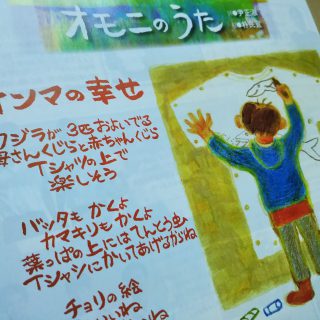 オモニのうた
オンマの幸せ
クジラが3匹およいでる
母さんくじらと赤ちゃんくじら
Tシャツの上で
楽しそう
バッタもかくよ
カマキリもかくよ
葉っぱの上にはてんとう虫
Tシャツにかいてあげるからね
チョリの絵